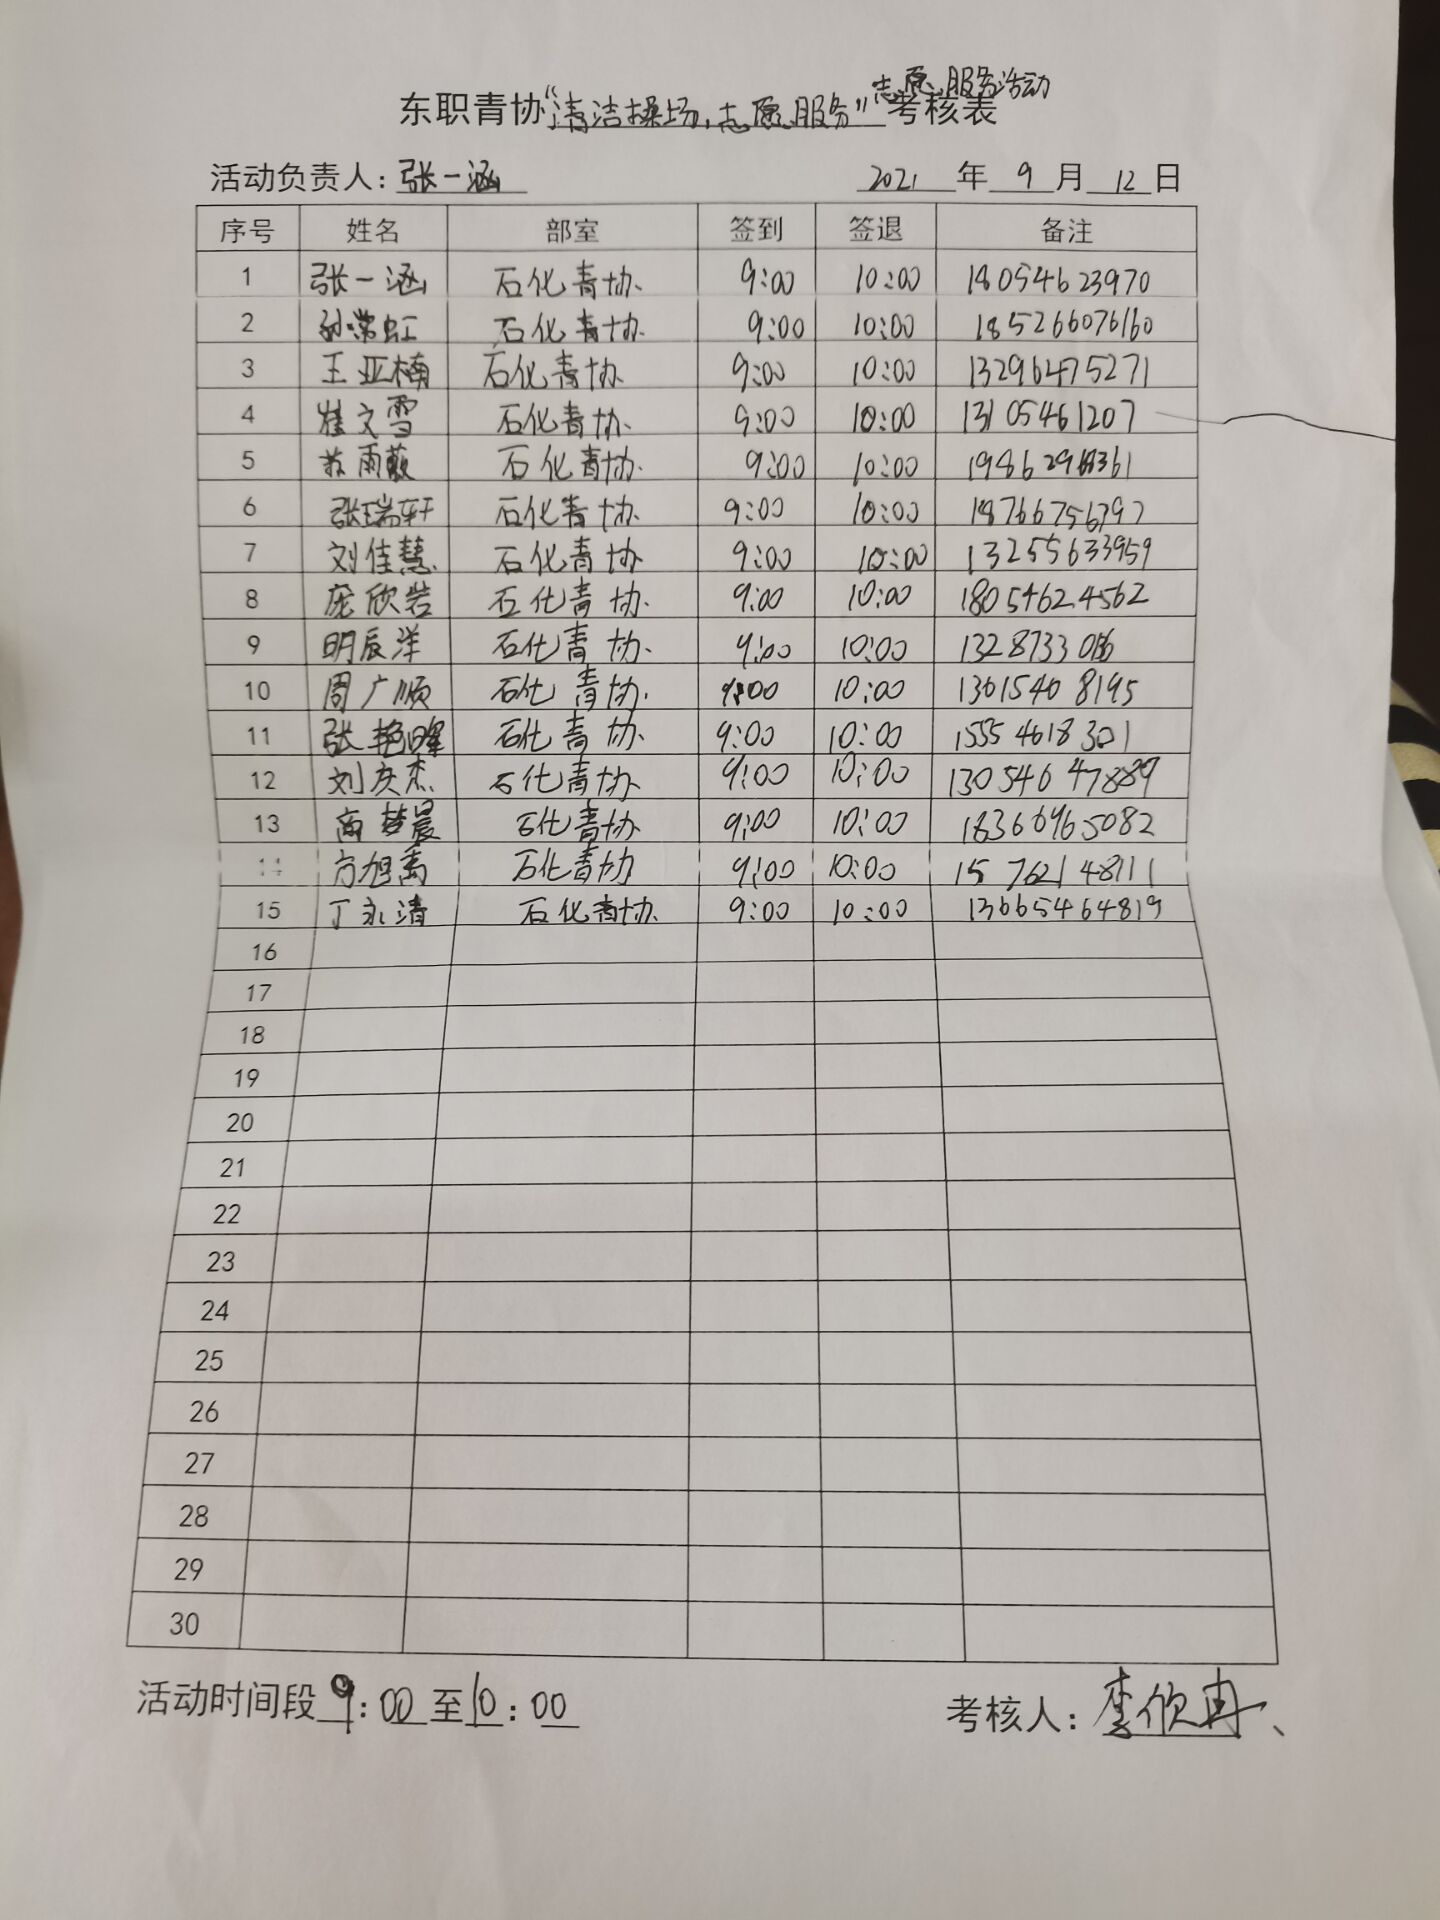 志愿服务活动
东职青协“清洁操场,志愿服务”考核表
活动负责人: 张一涵 2021 年 9 月 12 日
序号 姓名 部室 签到 签退 备注
1 张一涵 石化青协 9:00 10:00 18054623970
2 孙常虹 石化青协 9:00 10:00 185266076160
3 王亚楠 石化青协 9:00 10:00 13296475271
4 崔文雪 石化青协 9:00 10:00 13105461207
5 苏雨薇 石化青协 9:00 10:00
6 张瑞轩 石化青协 9:00 10:00 18766756797
7 刘佳慧 石化青协 9:00 10:00 13255633959
8 庞欣岩 石化青协 9:00 10:00 18054624562
9 明辰洋 石化青协 9:00 10:00
10 周广顺 石化青协 9:00 10:00 13615468195
11 张艳晖 石化青协 9:00 10:00 15554618301
12 刘庆杰 石化青协 9:00 10:00 13054647889
13 商梦晨 石化青协 9:00 10:00 18366965082
14 方旭禹 石化青协 9:00 10:00 15762148711
15 丁永清 石化青协 9:00 10:00 13665464819
16
17
18
19
20
21
22
23
24
25
26
27
28
29
30
活动时间段 9:00 至 10:00 考核人: 李欣冉